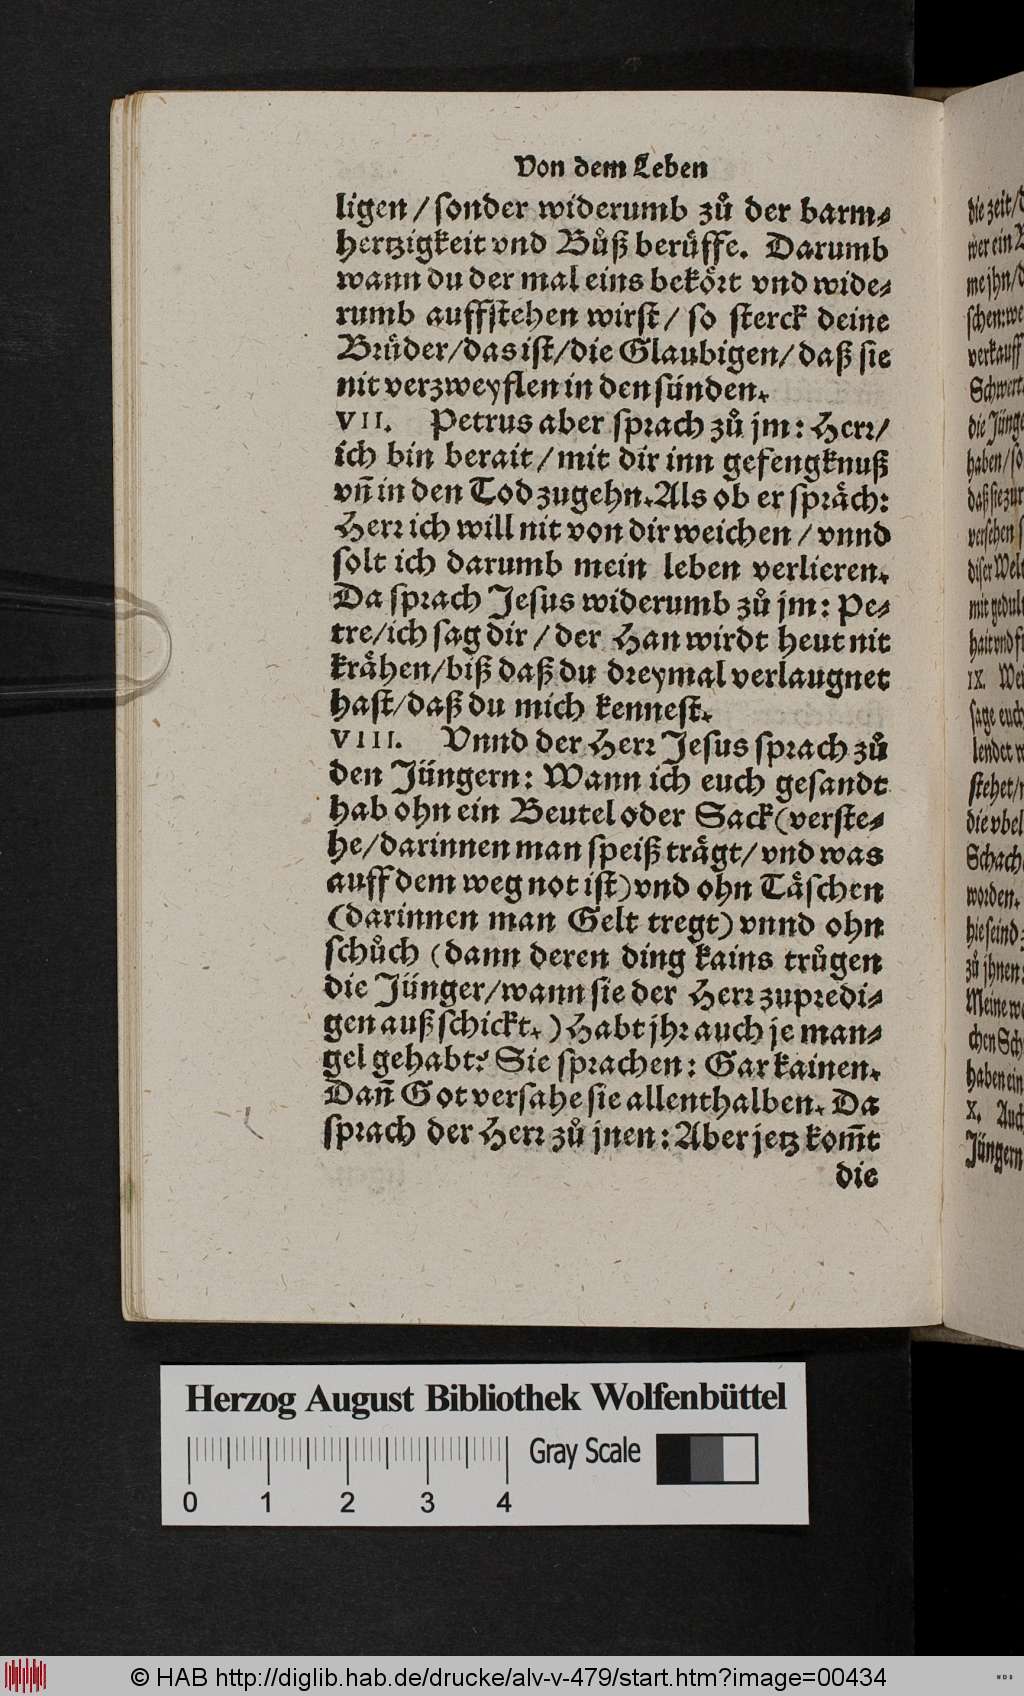 Von dem Leben
ligen / sonder widerumb zů der barm-
hertzigkeit vnd Bůß berüffe. Darumb
wann du der mal eins bekört vnd wide-
rumb auffstehen wirst / so sterck deine
Brüder/das ist/die Glaubigen/ daß sie
nit verzweyflen in den sünden.
VII. Petrus aber sprach zů jm: Herr/
ich bin berait / mit dir inn gefengknuß
vñ in den Tod zugehn. Als ob er spräch:
Herr ich will nit von dir weichen / vnnd
solt ich darumb mein leben verlieren.
Da sprach Jesus widerumb zů jm: Pe-
tre/ich sag dir / der Han wirdt heut nit
krähen/biß daß du dreymal verlaugnet
hast/daß du mich kennest.
VIII. Vnnd der Herr Jesus sprach zů
den Jüngern: Wann ich euch gesandt
hab ohn ein Beutel oder Sack (verste-
he/darinnen man speiß trägt/ vnd was
auff dem weg not ist) vnd ohn Täschen
(darinnen man Gelt tregt) vnnd ohn
schůch (dann deren ding kains trůgen
die Jünger/wann sie der Herr zupredi-
gen auß schickt.) Habt jhr auch je man-
gel gehabt? Sie sprachen: Gar kainen.
Dañ Got versahe sie allenthalben. Da
sprach der Herr zů jnen: Aber jetz kom̄t
die
die zeit/
wer ein
me jhn/
schen: we
verkauff
Schwert
die Jünge
haben/so
daß sie zur
versehen
diser Welt
mit gedult
hait vnd
IX. Wei
sage euch
lendet
stehet/
die vbel
Schach
worden.
hie seind
zů jhnen:
Meine
chen Sch
haben ein
X. Auch
Jüngern
Herzog August Bibliothek Wolfenbüttel
Gray Scale
0 1 2 3 4
© HAB http://diglib.hab.de/drucke/alv-v-479/start.htm?image=00434